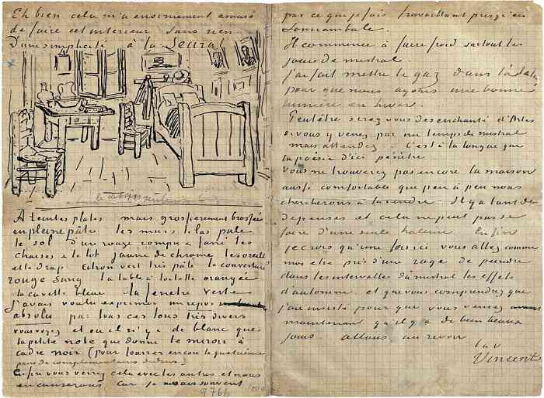 Eh bien cela m'a enormement amusé
de faire cet interieur sans rien
D'une simplicité à la Seurat
A teintes plates mais grossierement brossées
en pleine pâte les murs lilas pale
le sol d'un rouge rompu & fané les
chaises & le lit jaune de chrome les oreillers
et le drap citron vert très pâle la couverture
rouge sang la table à toilette orangée
la cuvette bleue la fenetre verte
J'avais voulu exprimer un repos
absolu par tous ces tons très divers
vous voyez et ou il n'y a de blanc que
la petite note que donne le miroir à
cadre noir (pour fourrer encore la quatrieme
paire de complementaires dedans)
Enfin vous verrez cela avec les autres et nous
en causerons car je sais souvent
9766
pas ce que je fais travaillant presqu'en
somnambule.
Il commence à faire froid surtout les
jours de mistral
J'ai fait mettre le gaz dans l'
pour que nous ayons une bonne
lumière en hiver.
Peutêtre serez vous desenchanté d'Arles
si vous y venez par un temps de mistral
mais attendez c'est à la longue que
la poésie d'ici penètre
vous ne trouverez pas encore la maison
aussi confortable que peu à peu nous
chercherons à la rendre Il y a tant de
depenses et cela ne peut pas se
faire d'une seule haleine Enfin
je crois qu'une fois ici vous allez comme
moi etre pris d'une rage de peindre
dans les intervalles du mistral les effets
d'automne et que vous comprendrez que
j'ai insisté pour que vous
maintenant qu'il y a de bien beaux
jours allons au revoir
t à v
Vincent